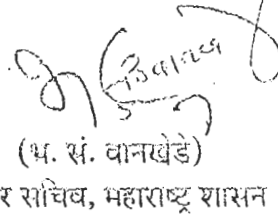 (भ. सं. वानखेडे)
र सचिव, महाराष्ट्र शासन